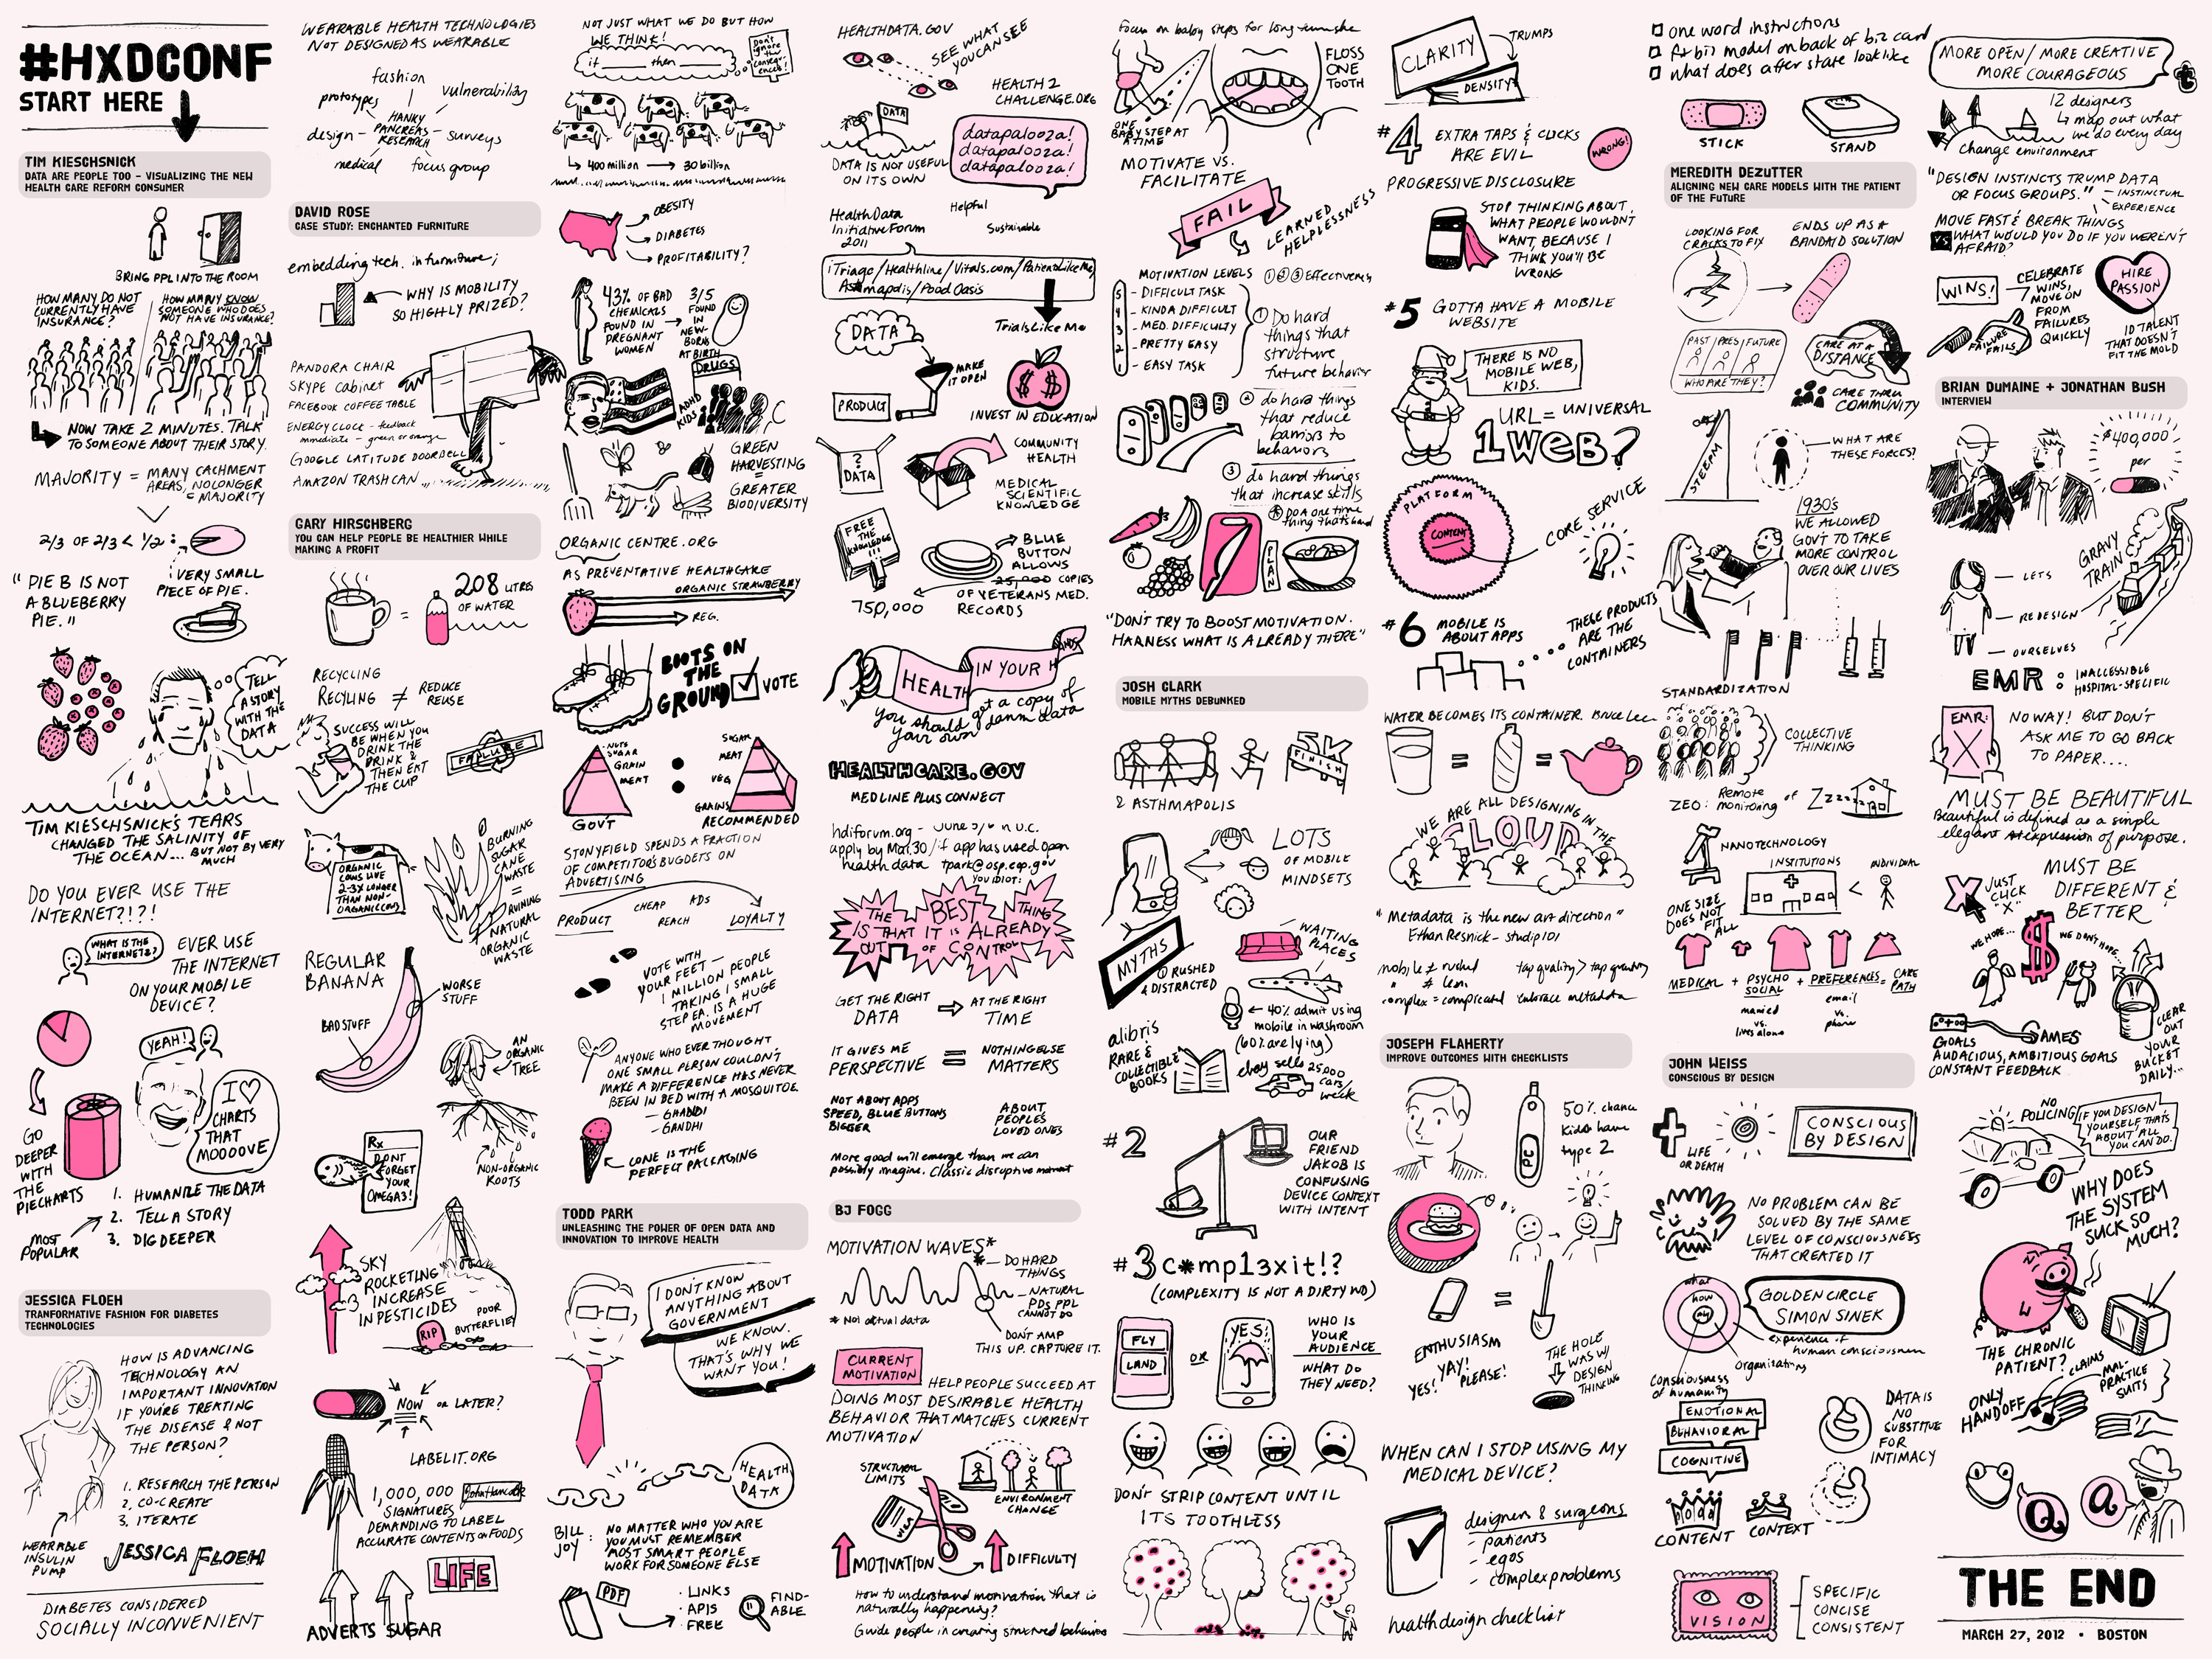 #HXDCONF
START HERE
TIM KIESCHSNICK
DATA ARE PEOPLE TOO – VISUALIZING THE NEW
HEALTH CARE REFORM CONSUMER
BRING PPL INTO THE ROOM
HOW MANY DO NOT
CURRENTLY HAVE
INSURANCE?
HOW MANY KNOW
SOMEONE WHO DOES
NOT HAVE INSURANCE?
NOW TAKE 2 MINUTES. TALK
TO SOMEONE ABOUT THEIR STORY.
MAJORITY = MANY CACHMENT
AREAS, NO LONGER
= MAJORITY
2/3 OF 2/3 < 1/2 :
VERY SMALL
PIECE OF PIE.
"PIE B IS NOT
A BLUEBERRY
PIE."
TELL
A STORY
WITH THE
DATA
TIM KIESCHSNICK'S TEARS
CHANGED THE SALINITY OF
THE OCEAN... BUT NOT BY VERY
MUCH
DO YOU EVER USE THE
INTERNET?!?!
WHAT IS THE
INTERNETS?
EVER USE
THE INTERNET
ON YOUR MOBILE
DEVICE?
YEAH!
I ♡
CHARTS
THAT
MOOOOVE
GO
DEEPER
WITH
THE
PIECHARTS
1. HUMANIZE THE DATA
2. TELL A STORY
3. DIG DEEPER
MOST
POPULAR
JESSICA FLOEH
TRANFORMATIVE FASHION FOR DIABETES
TECHNOLOGIES
HOW IS ADVANCING
TECHNOLOGY AN
IMPORTANT INNOVATION
IF YOU'RE TREATING
THE DISEASE & NOT
THE PERSON?
1. RESEARCH THE PERSON
2. CO-CREATE
3. ITERATE
WEARABLE
INSULIN
PUMP
JESSICA FLOEH
DIABETES CONSIDERED
SOCIALLY INCONVENIENT
WEARABLE HEALTH TECHNOLOGIES
NOT DESIGNED AS WEARABLE
fashion
prototypes
vulnerability
HANKY
PANCREAS
RESEARCH
design
surveys
medical
focus group
DAVID ROSE
CASE STUDY: ENCHANTED FURNITURE
embedding tech. in furniture;
WHY IS MOBILITY
SO HIGHLY PRIZED?
PANDORA CHAIR
SKYPE cabinet
FACEBOOK COFFEE TABLE
ENERGY CLOCK - feedback
immediate - green or orange
GOOGLE LATITUDE DOORBELL
AMAZON TRASHCAN
GARY HIRSCHBERG
YOU CAN HELP PEOPLE BE HEALTHIER WHILE
MAKING A PROFIT
= 208 LITRES
OF WATER
RECYCLING
RECYLING ≠ REDUCE
REUSE
SUCCESS WILL
BE WHEN YOU
DRINK THE
DRINK &
THEN EAT
THE CUP
FAILURE
ORGANIC
COWS LIVE
2-3X LONGER
THAN NON-
ORGANIC COWS
BURNING
SUGAR
CANE
WASTE
=
RUINING
NATURAL
ORGANIC
WASTE
REGULAR
BANANA
WORSE
STUFF
BAD STUFF
AN
ORGANIC
TREE
Rx
DON'T
FORGET
YOUR
OMEGA3!
NON-ORGANIC
ROOTS
SKY
ROCKETING
INCREASE
IN PESTICIDES
POOR
BUTTERFLIES
RIP
NOW OR LATER?
LABELIT.ORG
1,000,000 John Hancock
SIGNATURES
DEMANDING TO LABEL
ACCURATE CONTENTS ON FOODS
LIFE
ADVERTS SUGAR
NOT JUST WHAT WE DO BUT HOW
WE THINK!
if ____ then ____
Don't
ignore
the
consequences!
400 million → 30 billion
OBESITY
DIABETES
PROFITABILITY?
43% OF BAD
CHEMICALS
FOUND IN
PREGNANT
WOMEN
3/5
FOUND
IN
NEW-
BORNS
AT BIRTH
DRUGS
ADHD
KIDS
GREEN
HARVESTING
=
GREATER
BIODIVERSITY
ORGANIC CENTRE.ORG
AS PREVENTATIVE HEALTHCARE
ORGANIC STRAWBERRY
REG.
BOOTS ON
THE
GROUND
VOTE
NUTS
SUGAR
GRAIN
MEAT
GOV'T
SUGAR
MEAT
VEG
GRAINS
RECOMMENDED
STONYFIELD SPENDS A FRACTION
OF COMPETITOR'S BUGDETS ON
ADVERTISING
PRODUCT
CHEAP
REACH
ADS
LOYALTY
VOTE WITH
YOUR FEET –
1 MILLION PEOPLE
TAKING 1 SMALL
STEP EA. IS A HUGE
MOVEMENT
ANYONE WHO EVER THOUGHT
ONE SMALL PERSON COULDN'T
MAKE A DIFFERENCE HAS NEVER
BEEN IN BED WITH A MOSQUITOE
– GHANDI
– GANDHI
CONE IS THE
PERFECT PACKAGING
TODD PARK
UNLEASHING THE POWER OF OPEN DATA AND
INNOVATION TO IMPROVE HEALTH
I DON'T KNOW
ANYTHING ABOUT
GOVERNMENT
WE KNOW.
THAT'S WHY WE
WANT YOU!
HEALTH
DATA
BILL
JOY :
NO MATTER WHO YOU ARE
YOU MUST REMEMBER
MOST SMART PEOPLE
WORK FOR SOMEONE ELSE
PDF
· LINKS
· APIS
· FREE
FIND-
ABLE
HEALTHDATA.GOV
SEE WHAT
YOU CAN SEE
HEALTH 2
CHALLENGE.ORG
DATA
DATA IS NOT USEFUL
ON ITS OWN
datapalooza!
datapalooza!
datapalooza!
Health Data
Initiative Forum
2011
Helpful
Sustainable
iTriago/Healthline/Vitals.com/PatientsLikeMe
Asthmapolis/Food Oasis
TrialsLikeMe
DATA
MAKE
IT OPEN
PRODUCT
$ $
INVEST IN EDUCATION
?
DATA
COMMUNITY
HEALTH
MEDICAL
SCIENTIFIC
KNOWLEDGE
FREE
THE
KNOWLEDGE
!!!
BLUE
BUTTON
ALLOWS
25,000 COPIES
OF VETERANS MED.
RECORDS
750,000
HEALTH IN YOUR HANDS
you should get a copy of
your own damn data
HEALTHCARE.GOV
MEDLINE PLUS CONNECT
hdiforum.org - June 5/6 in D.C.
apply by Mar.30/if app has used open
health data tpark@osp.eop.gov
YOU IDIOT!
THE BEST THING
IS THAT IT IS ALREADY
OUT OF CONTROL
GET THE RIGHT
DATA
AT THE RIGHT
TIME
IT GIVES ME
PERSPECTIVE
=
NOTHING ELSE
MATTERS
NOT ABOUT APPS
SPEED, BLUE BUTTONS
BIGGER
ABOUT
PEOPLE'S
LOVED ONES
More good will emerge than we can
possibly imagine. Classic disruptive moment
BJ FOGG
MOTIVATION WAVES*
* DO HARD
THINGS
– NATURAL
PDS PPL
CANNOT DO
* Not actual data
DON'T AMP
THIS UP. CAPTURE IT.
CURRENT
MOTIVATION
HELP PEOPLE SUCCEED AT
DOING MOST DESIRABLE HEALTH
BEHAVIOR THAT MATCHES CURRENT
MOTIVATION
STRUCTURAL
LIMITS
VISA
ENVIRONMENT
CHANGE
MOTIVATION
DIFFICULTY
How to understand motivation that is
naturally happening?
Guide people in creating structured behaviors
Focus on baby steps for long-term
ONE
BABY STEP AT
A TIME
FLOSS
ONE
TOOTH
MOTIVATE VS.
FACILITATE
FAIL
LEARNED
HELPLESSNESS
MOTIVATION LEVELS
①②③ Effectiveness
5 - DIFFICULT TASK
4 - KINDA DIFFICULT
3 - MED. DIFFICULTY
2 - PRETTY EASY
1 - EASY TASK
① Do hard
things that
structure
future behavior
② do hard things
that reduce
barriors to
behaviors
③ do hard things
that increase skills
DO A one time
thing that's hard
PLAN
"DON'T TRY TO BOOST MOTIVATION.
HARNESS WHAT IS ALREADY THERE"
JOSH CLARK
MOBILE MYTHS DEBUNKED
5K
FINISH
& ASTHMAPOLIS
LOTS
OF MOBILE
MINDSETS
MYTHS
① RUSHED
& DISTRACTED
WAITING
PLACES
← 40% admit using
mobile in washroom
(60% are lying)
alibris
RARE &
COLLECTIBLE
BOOKS
ebay sells 25,000
cars/
week
#2
OUR
FRIEND
JAKOB IS
CONFUSING
DEVICE CONTEXT
WITH INTENT
#3 c*mpl3xit!?
(COMPLEXITY IS NOT A DIRTY WD)
FLY
LAND
OR
YES!
WHO IS
YOUR
AUDIENCE
WHAT DO
THEY NEED?
DON'T STRIP CONTENT UNTIL
IT'S TOOTHLESS
CLARITY
TRUMPS
DENSITY
#4 EXTRA TAPS & CLICKS
ARE EVIL
WRONG!
PROGRESSIVE DISCLOSURE
STOP THINKING ABOUT
WHAT PEOPLE WOULDN'T
WANT, BECAUSE I
THINK YOU'LL BE
WRONG
#5 GOTTA HAVE A MOBILE
WEBSITE
THERE IS NO
MOBILE WEB,
KIDS.
URL = UNIVERSAL
1 WEB?
PLATFORM
CONTENT
CORE SERVICE
#6 MOBILE IS
ABOUT APPS
THESE PRODUCTS
ARE THE
CONTAINERS
WATER BECOMES ITS CONTAINER. Bruce Lee
= =
WE ARE ALL DESIGNING IN THE
CLOUD
"Metadata is the new art direction"
Ethan Resnick - studip101
mobile ≠ rushed
" ≠ less
complex = complicated
tap quality > tap quantity
embrace metadata
JOSEPH FLAHERTY
IMPROVE OUTCOMES WITH CHECKLISTS
50% chance
kids have
type 2
ENTHUSIASM
YAY!
YES! PLEASE!
=
THE HOLE
WAS W/
DESIGN
THINKING
WHEN CAN I STOP USING MY
MEDICAL DEVICE?
designers & surgeons
- patients
- egos
- complex problems
health design checklist
one word instructions
fit biz model on back of biz card
what does after state look like
STICK
STAND
MEREDITH DEZUTTER
ALIGNING NEW CARE MODELS WITH THE PATIENT
OF THE FUTURE
LOOKING FOR
CRACKS TO FIX
ENDS UP AS A
BANDAID SOLUTION
PAST PRES FUTURE
WHO ARE THEY?
CARE AT A
DISTANCE
CARE THRU
COMMUNITY
STEEPM
WHAT ARE
THESE FORCES?
1930's
WE ALLOWED
GOV'T TO TAKE
MORE CONTROL
OVER OUR LIVES
STANDARDIZATION
COLLECTIVE
THINKING
ZEO: Remote
monitoring of Zzz
NANOTECHNOLOGY
INSTITUTIONS
<
INDIVIDUAL
ONE SIZE
DOES NOT
FIT ALL
MEDICAL + PSYCHO
SOCIAL + PREFERENCES = CARE
PATH
married
vs.
lives alone
email
vs.
phone
JOHN WEISS
CONSCIOUS BY DESIGN
LIFE
OR DEATH
CONSCIOUS
BY DESIGN
NO PROBLEM CAN BE
SOLVED BY THE SAME
LEVEL OF CONSCIOUSNESS
THAT CREATED IT
what
how
why
GOLDEN CIRCLE
SIMON SINEK
experience of
human consciousness
organizations
consciousness
of humanity
EMOTIONAL
BEHAVIORAL
COGNITIVE
DATA IS
NO
SUBSTITUE
FOR
INTIMACY
CONTENT
CONTEXT
VISION
SPECIFIC
CONCISE
CONSISTENT
MORE OPEN / MORE CREATIVE
MORE COURAGEOUS
12 designers
↳ map out what
we do every day
change environment
"DESIGN INSTINCTS TRUMP DATA
OR FOCUS GROUPS." – INSTINCTUAL
– EXPERIENCE
MOVE FAST & BREAK THINGS
VS WHAT WOULD YOU DO IF YOU WEREN'T
AFRAID?
WINS!
CELEBRATE
WINS,
MOVE ON
FROM
FAILURES
QUICKLY
FAILURE
FAILS
HIRE
PASSION
ID TALENT
THAT DOESN'T
FIT THE MOLD
BRIAN DUMAINE + JONATHAN BUSH
INTERVIEW
$400,000
per
GRAVY
TRAIN
– LETS
– REDESIGN
– OURSELVES
EMR : INACCESSIBLE
HOSPITAL-SPECIFIC
EMR:
X
NO WAY! BUT DON'T
ASK ME TO GO BACK
TO PAPER....
MUST BE BEAUTIFUL
Beautiful is defined as a simple
elegant expression of purpose.
MUST BE
DIFFERENT &
BETTER
X JUST
CLICK
"X"
WE HOPE...
$
WE DON'T HOPE...
GAMES
GOALS
AUDACIOUS, AMBITIOUS GOALS
CONSTANT FEEDBACK
CLEAR
OUT
YOUR
BUCKET
DAILY...
NO
POLICING
IF YOU DESIGN
YOURSELF THAT'S
ABOUT ALL
YOU CAN DO.
WHY DOES
THE SYSTEM
SUCK SO
MUCH?
THE CHRONIC
PATIENT?
ONLY
HANDOFF
CLAIMS
MAL-
PRACTICE
SUITS
Q
a
THE END
MARCH 27, 2012 • BOSTON